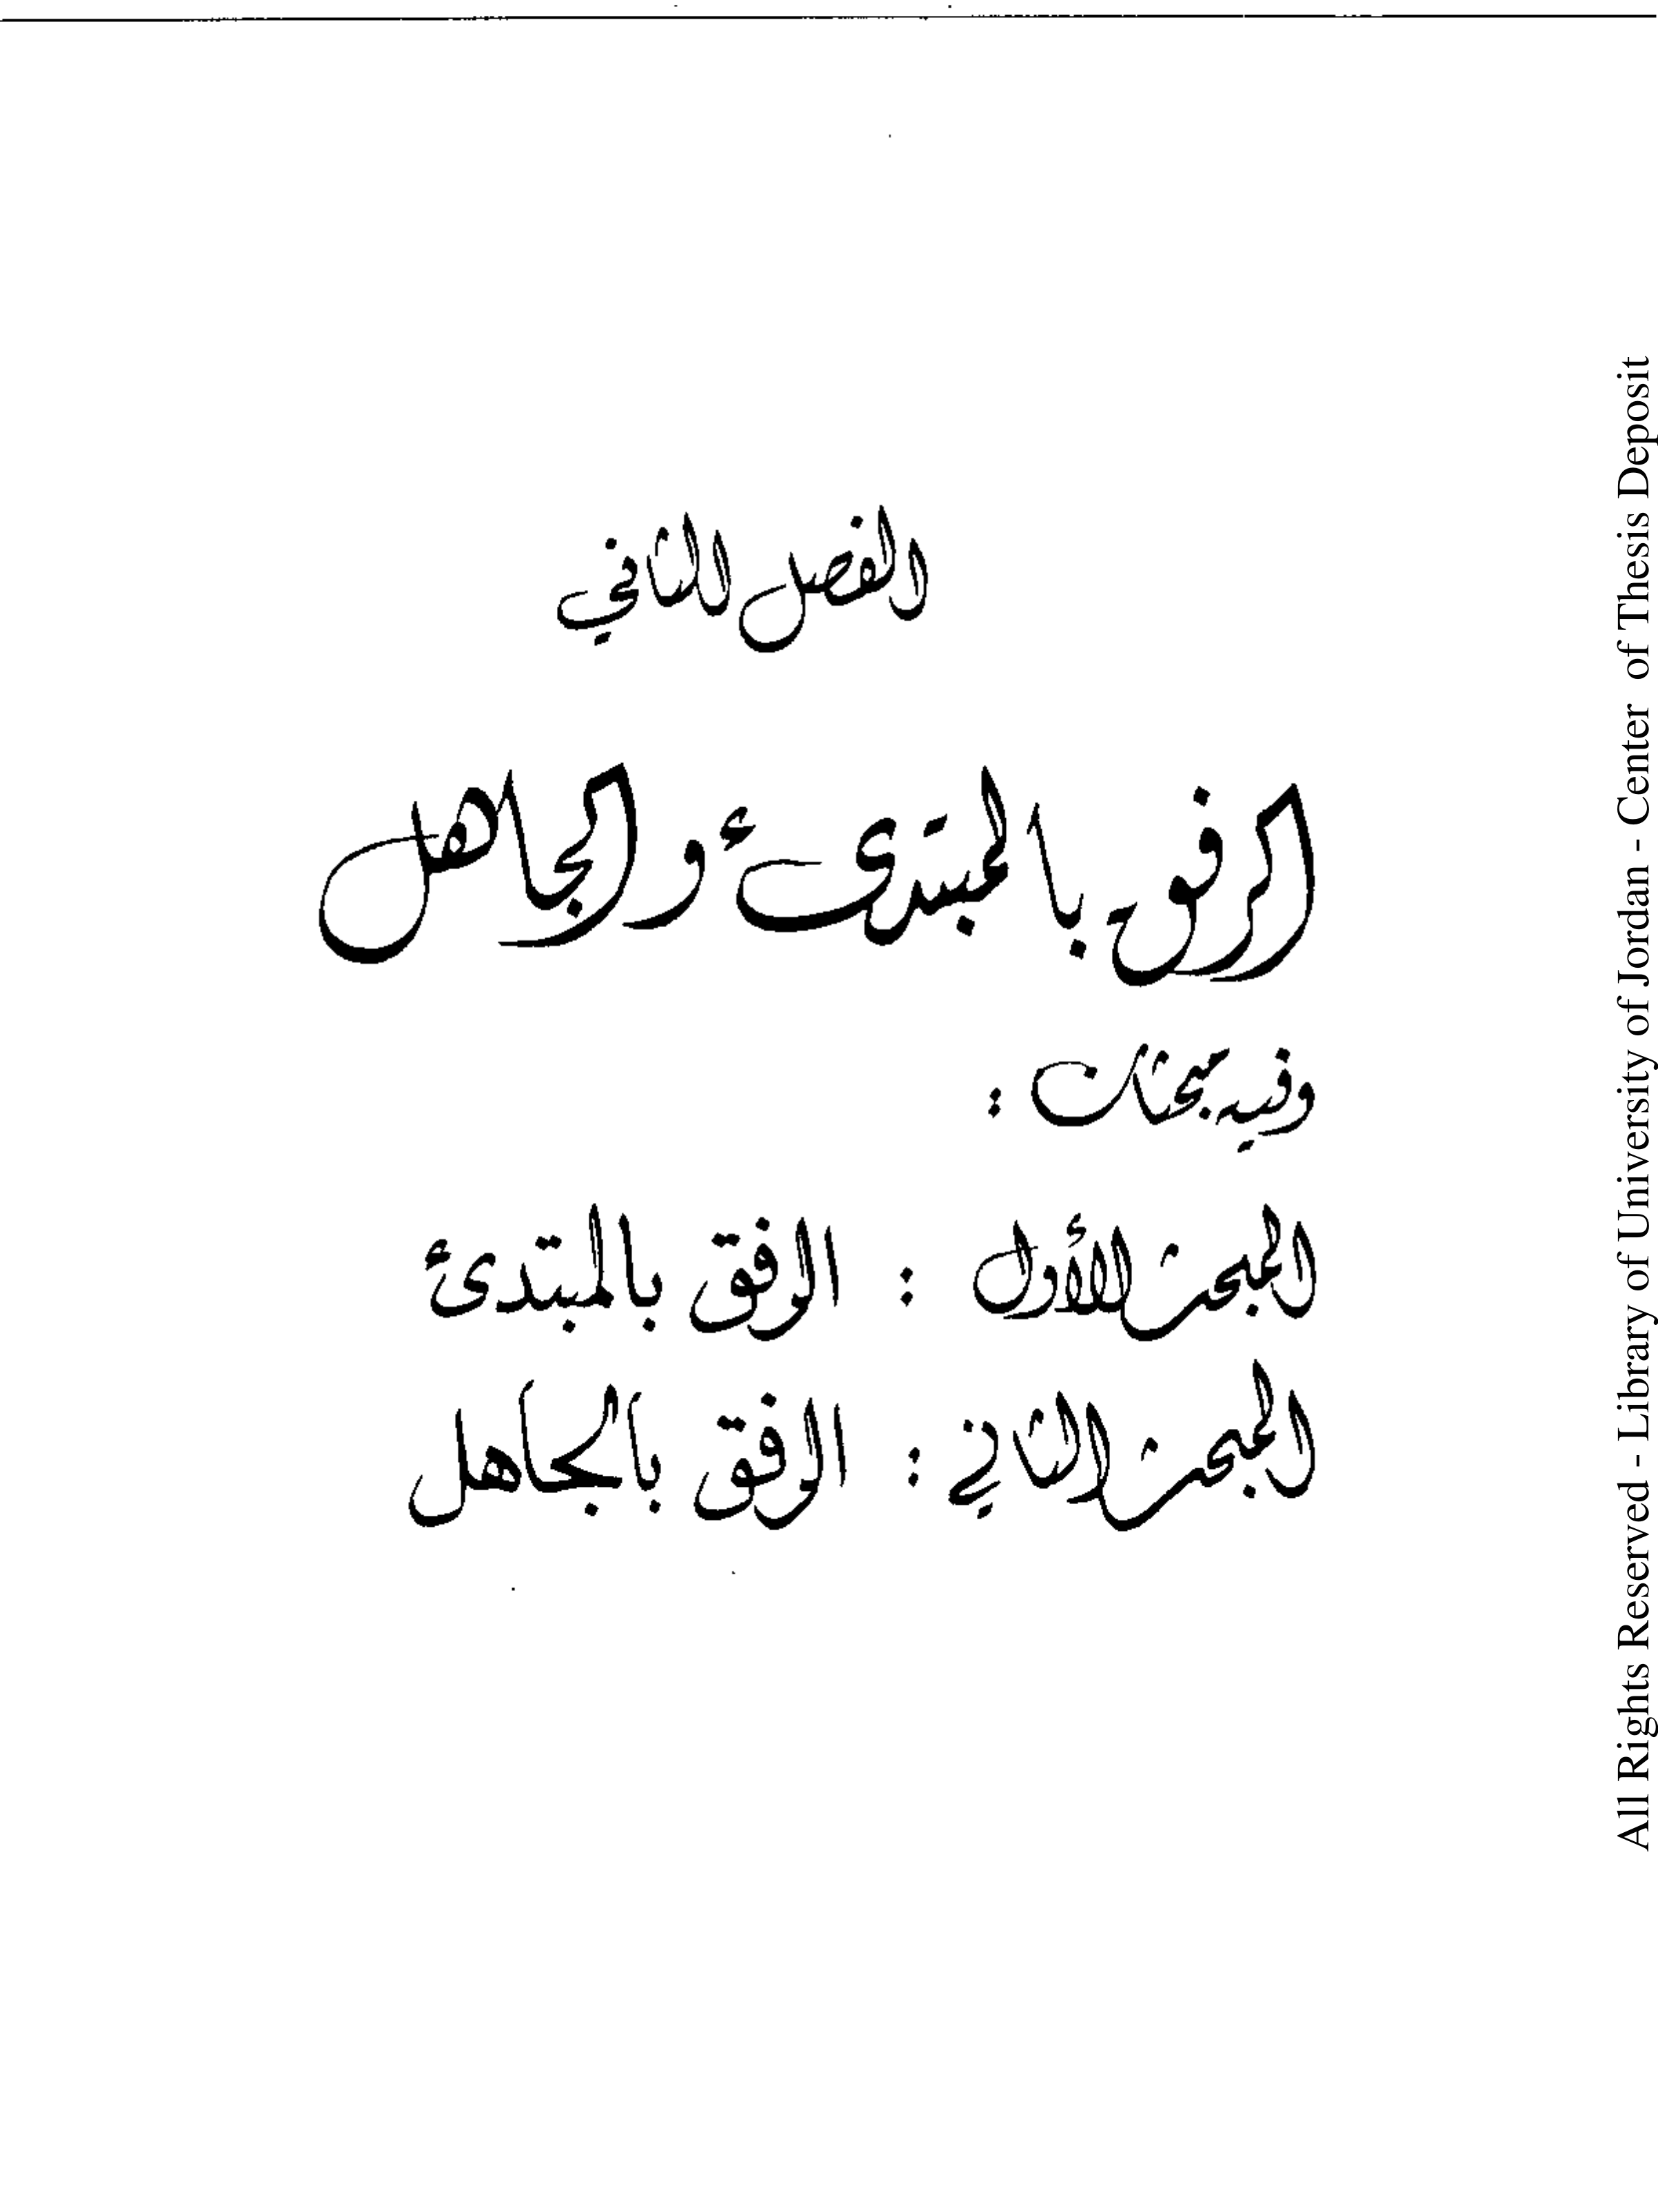 الفصل الثاني
الرفق بالمبتدئ والجاهل
وفيه مبحثان :
المبحث الأول : الرفق بالمبتدئ
المبحث الثاني : الرفق بالجاهل
All Rights Reserved - Library of University of Jordan - Center of Thesis Deposit